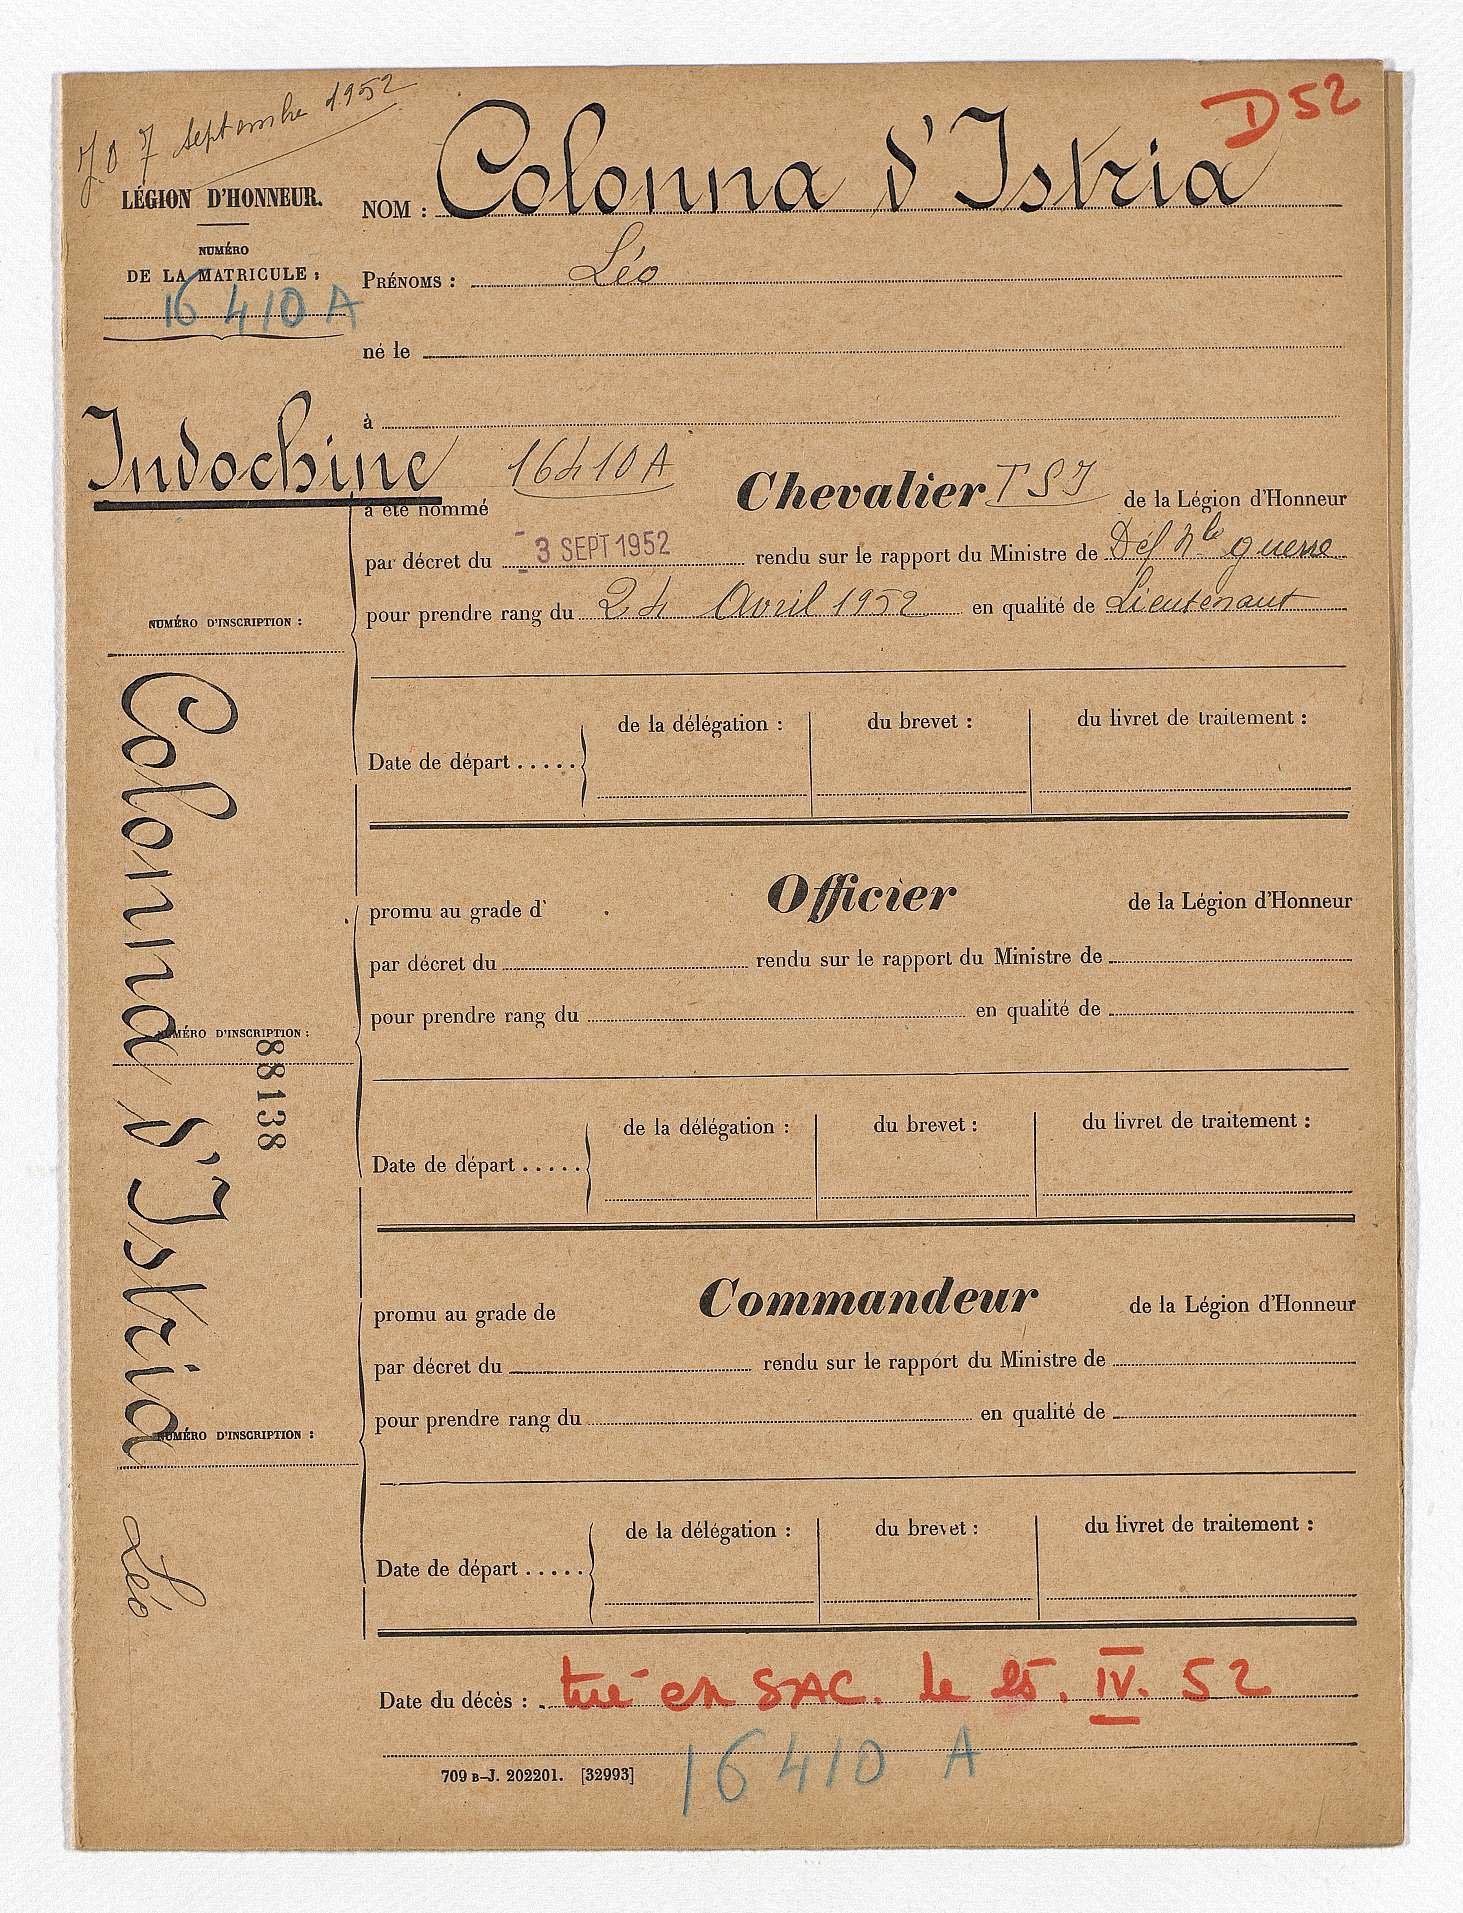 J.O 7 septembre 1952
D 52
LÉGION D'HONNEUR.
NUMÉRO
DE LA MATRICULE :
16410 A
NOM : Colonna d'Istria
PRÉNOMS : Léo
né le
à
Indochine
16410 A
a été nommé Chevalier TSI de la Légion d'Honneur
par décret du - 3 SEPT 1952 rendu sur le rapport du Ministre de Déf Nle guerre
pour prendre rang du 24 Avril 1952 en qualité de Lieutenant
NUMÉRO D'INSCRIPTION :
Date de départ ..... de la délégation : du brevet : du livret de traitement :
Colonna d'Istria Léo
88138
promu au grade d' Officier de la Légion d'Honneur
par décret du rendu sur le rapport du Ministre de
pour prendre rang du en qualité de
NUMÉRO D'INSCRIPTION :
Date de départ ..... de la délégation : du brevet : du livret de traitement :
promu au grade de Commandeur de la Légion d'Honneur
par décret du rendu sur le rapport du Ministre de
pour prendre rang du en qualité de
NUMÉRO D'INSCRIPTION :
Date de départ ..... de la délégation : du brevet : du livret de traitement :
Date du décès : tué en SAC. le 25. IV. 52
709 B-J. 202201. [32993]
16410 A